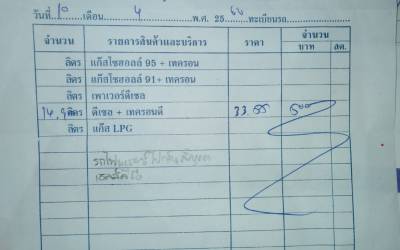 วันที่ 10 เดือน 4 พ.ศ. 25 ทะเบียนรถ
จำนวน รายการสินค้าและบริการ ราคา จำนวน
บาท สต.
ลิตร แก๊สโซฮอลล์ 95 + เทครอน
ลิตร แก๊สโซฮอลล์ 91+ เทครอน
ลิตร เพาเวอร์ดีเซล
ลิตร ดีเซล + เทครอนดี 33.55 500
ลิตร แก๊ส LPG